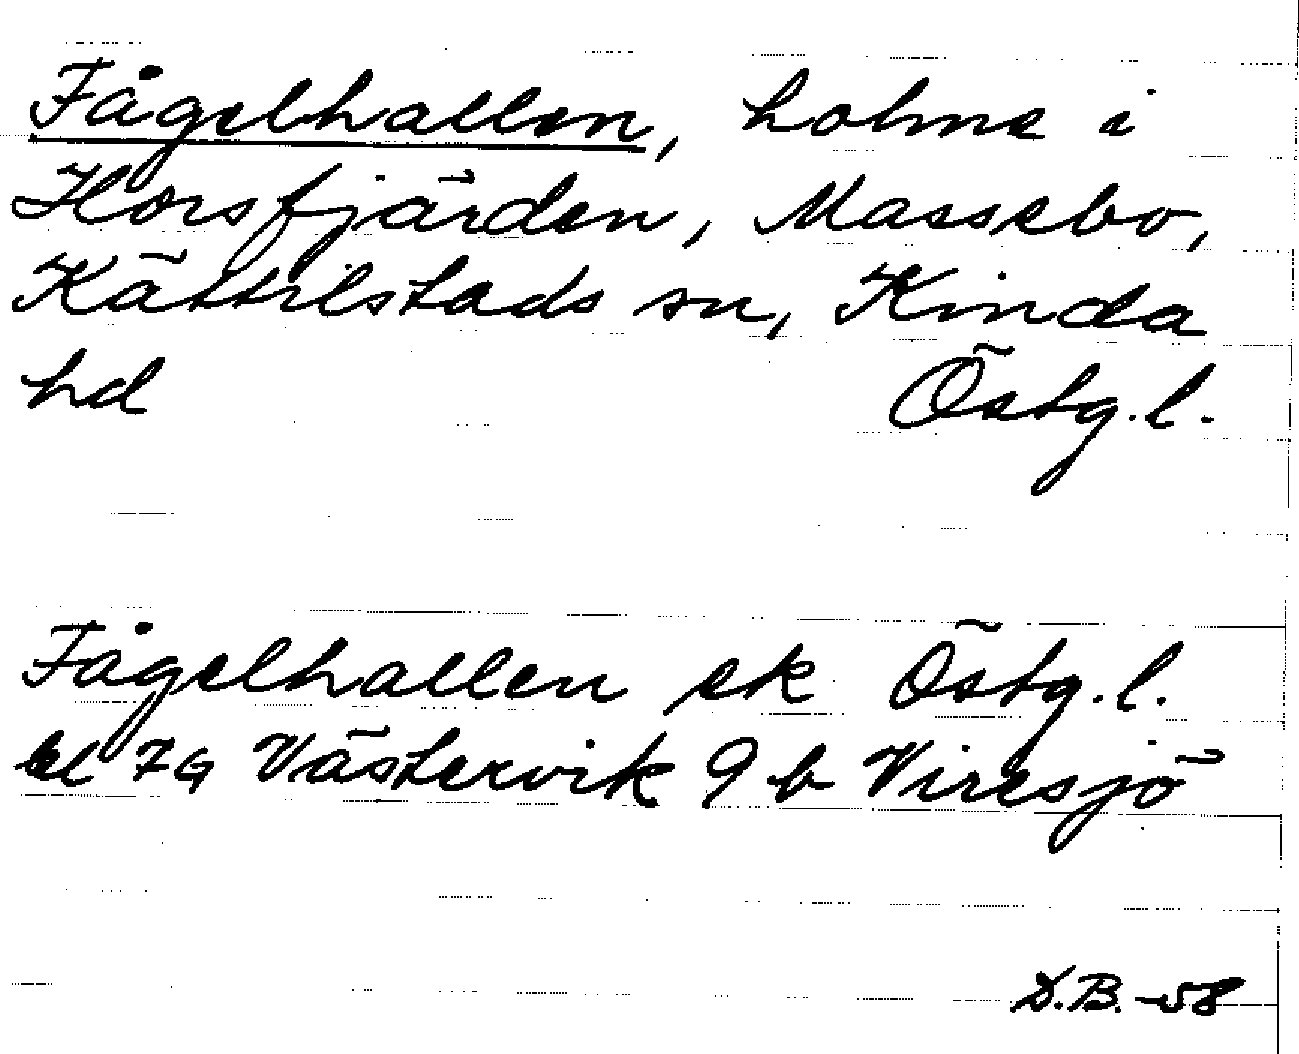 Fågelhallen, holme i
Horsfjärden, Massebo,
Kättilstads sn, Kinda
hd Östg.l.
Fågelhallen ek Östg.l.
bl 7G Västervik 9 b Viresjö
D.B.-58